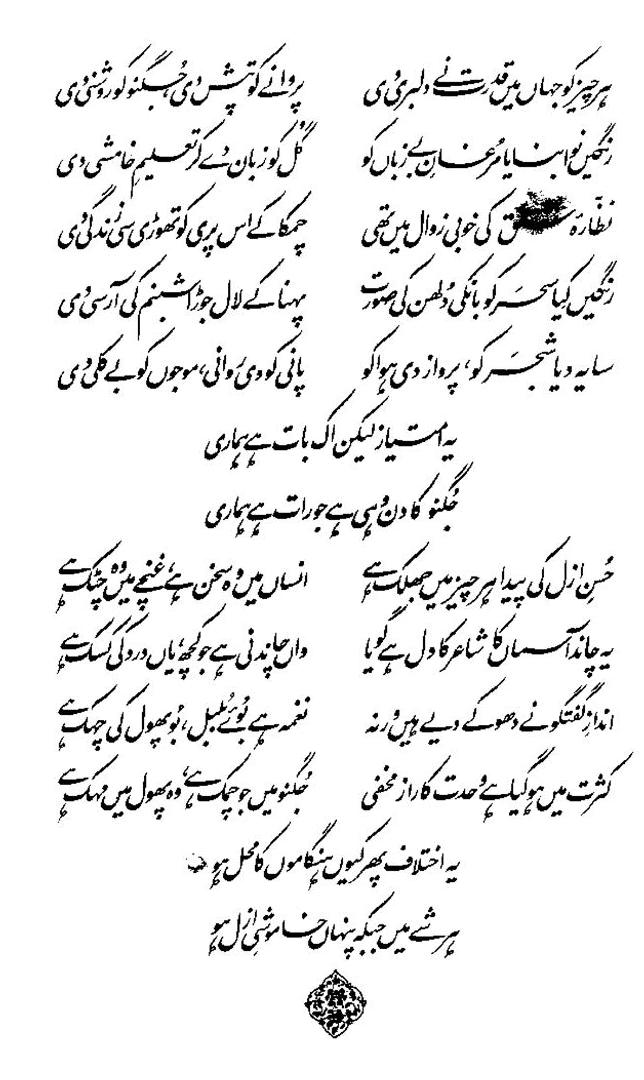 ہر چیز کو جہاں میں قدرت نے دلبری دی پروانے کو تپش دی، جُگنو کو روشنی دی
رنگیں نوا بنایا مرغانِ بے زباں کو گُل کو زبان دے کر تعلیمِ خامشی دی
نظّارۂ کی خوبی زوال میں تھی چمکا کے اس پری کو تھوڑی سی زندگی دی
رنگیں کِیا سحر کو بانکی دُلھن کی صورت پہنا کے لال جوڑا شبنم کی آرسی دی
سایہ دیا شجر کو، پرواز دی ہوا کو پانی کو دی روانی، موجوں کو بے کلی دی
یہ امتیاز لیکن اک بات ہے ہماری
جُگنو کا دن وہی ہے جو رات ہے ہماری
حُسنِ ازل کی پیدا ہر چیز میں جھلک ہے انساں میں وہ سخن ہے، غنچے میں وہ چٹک ہے
یہ چاند آسماں کا شاعر کا دل ہے گویا واں چاندنی ہے جو کچھ، یاں درد کی کسک ہے
اندازِ گفتگو نے دھوکے دیے ہیں ورنہ نغمہ ہے بُوئے بُلبل، بُو پھول کی چہک ہے
کثرت میں ہو گیا ہے وحدت کا راز مخفی جُگنو میں جو چمک ہے، وہ پھول میں مہک ہے
یہ اختلاف پھر کیوں ہنگاموں کا محل ہو
ہر شے میں جبکہ پنہاں خاموشیِ ازل ہو